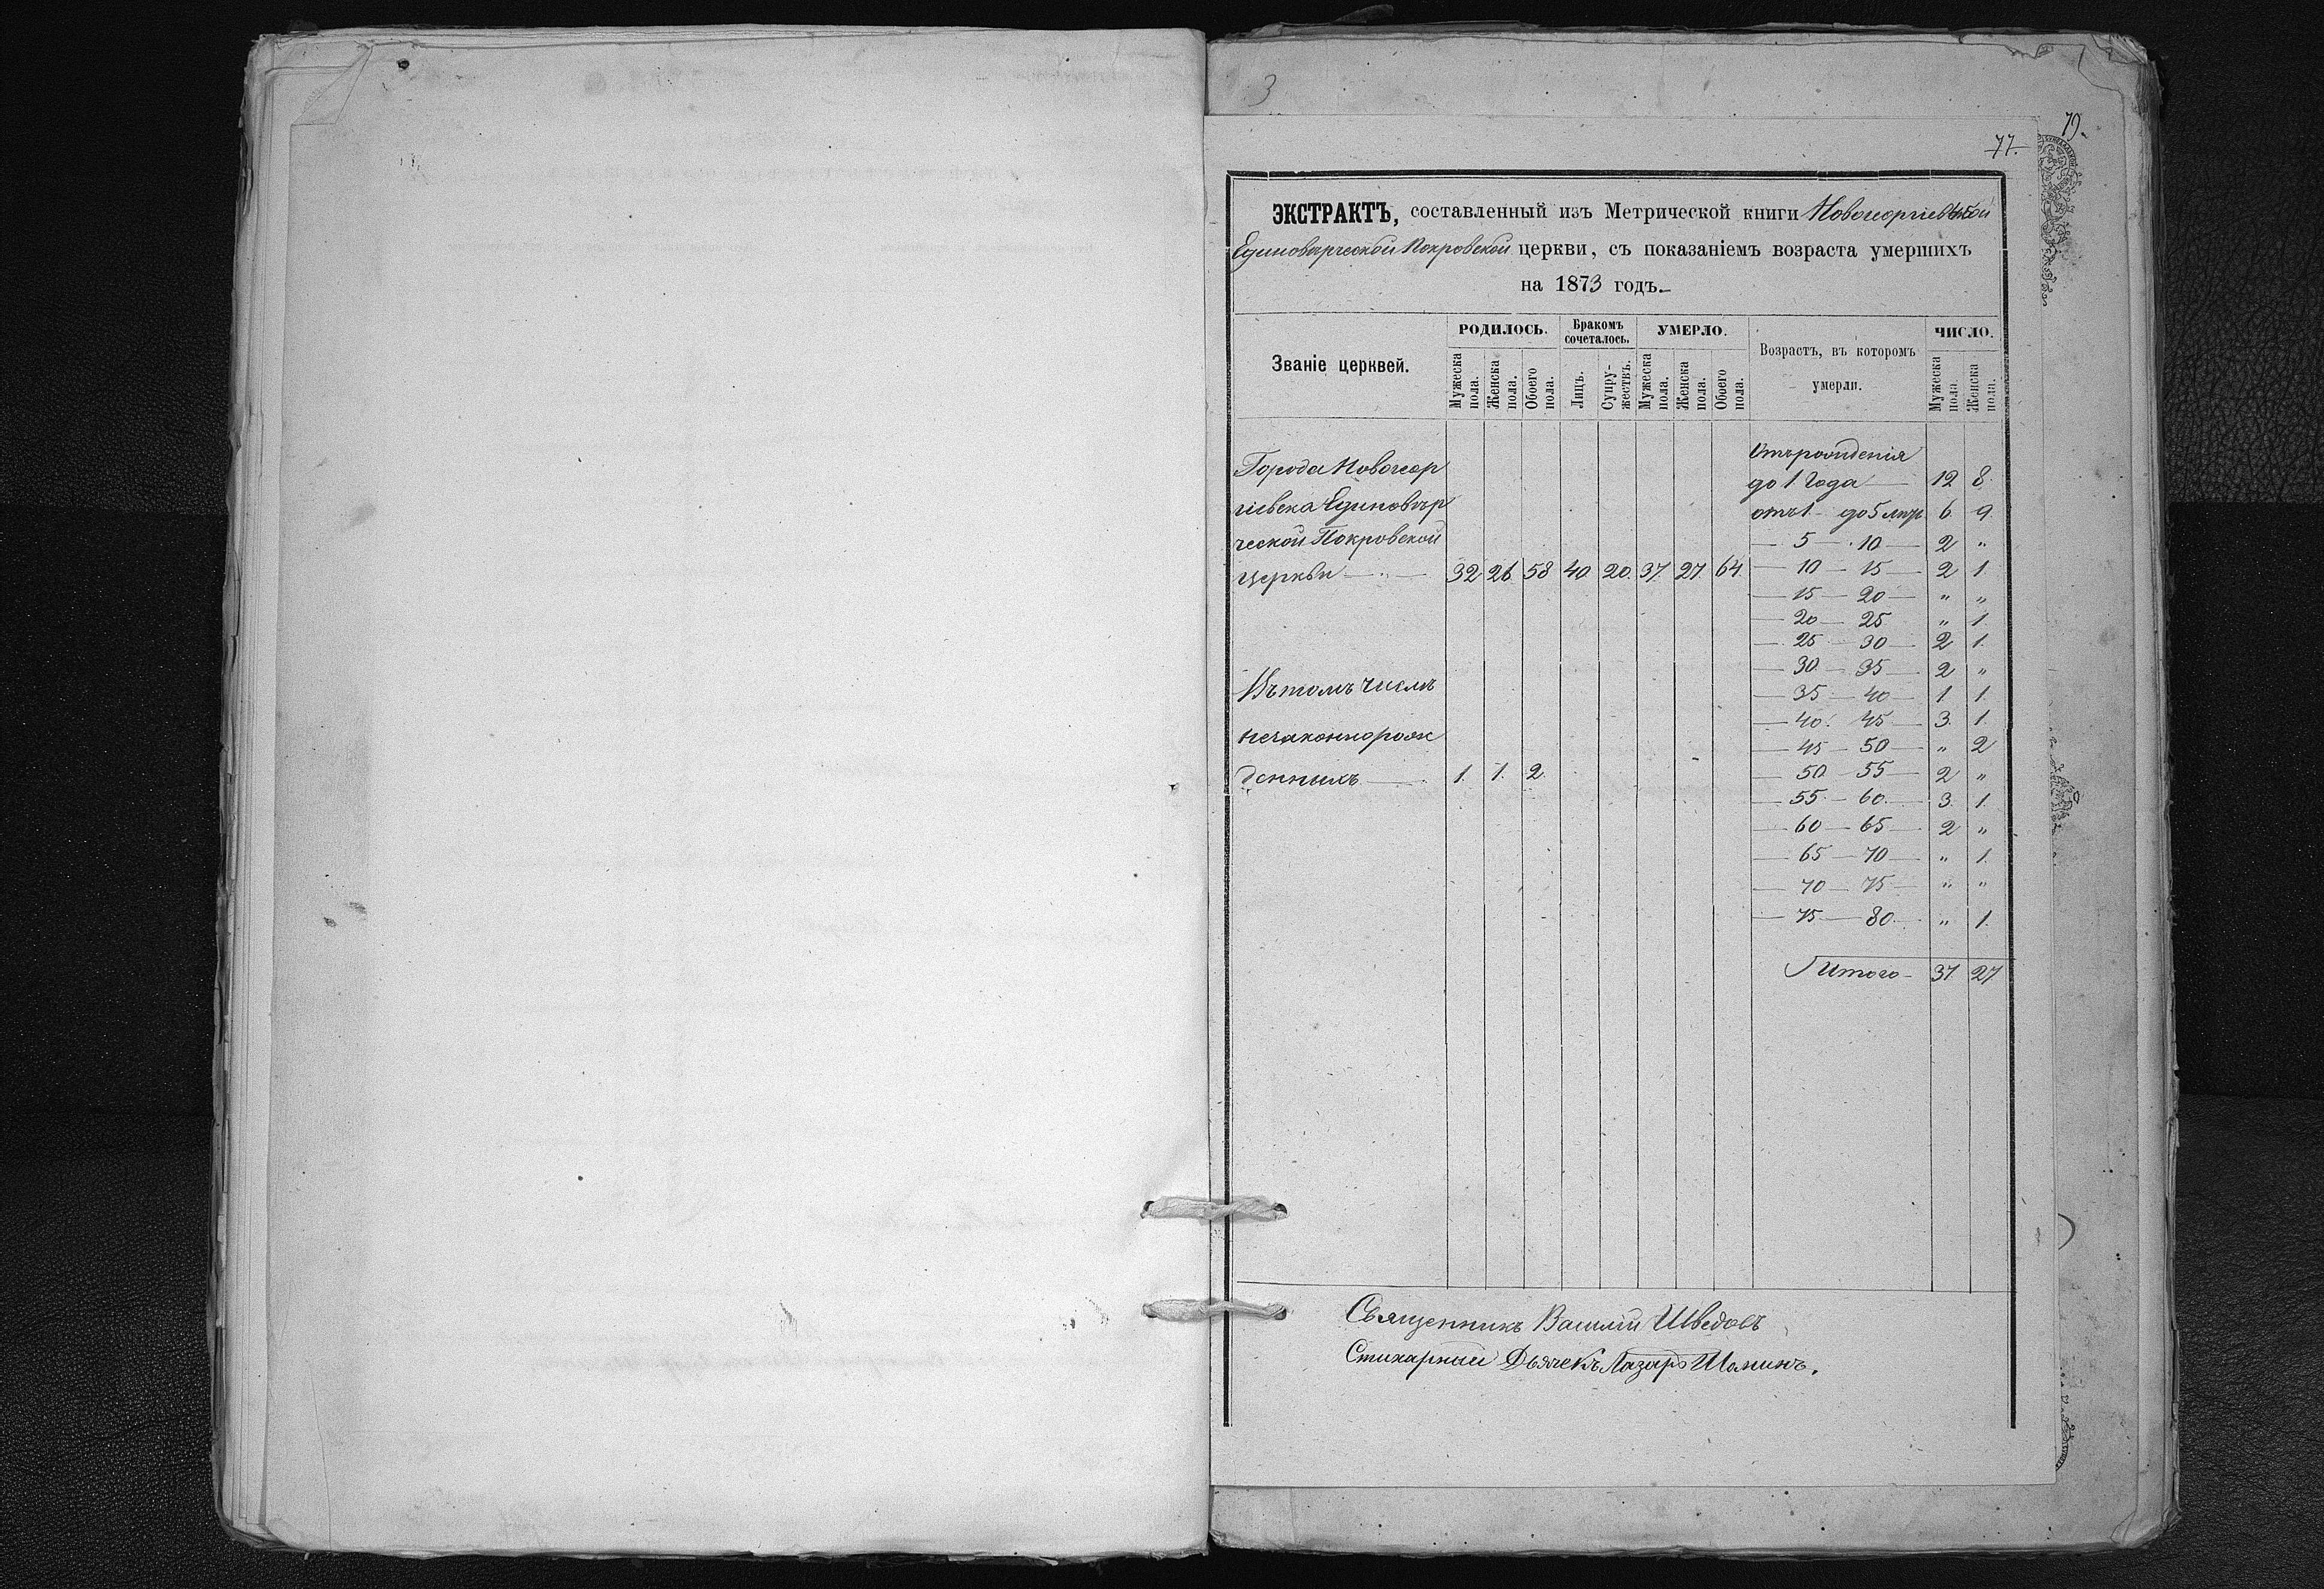 3
79.
77.
ЭКСТРАКТЪ, составленный изъ Метрической книги Новогеоргіевской
Единоверческой Покровской церкви, съ показаніемъ возраста умершихъ
на 1873 годъ.
Званіе церквей. РОДИЛОСЬ. Бракомъ сочеталось. УМЕРЛО. Возрастъ, въ которомъ умерли. ЧИСЛО.
Мужеска пола. Женска пола. Обоего пола. Лицъ. Супружествъ. Мужеска пола. Женска пола. Обоего пола. Мужеска пола. Женска пола.
Отъ рожденія
Города Новогеор
до 1 года 12 8.
гіевска Единовѣр
отъ 1 до 5 лѣтъ 6 9
ческой Покровской
— 5 — 10 — 2 „
церкви — „ — 32 26 58 40 20. 37 27 64 — 10 — 15 — 2 1.
— 15 — 20 — „ „
— 20 — 25 „ 1.
— 25 — 30 — 2 1.
— 30 — 35 — 2 „
Въ томъ числѣ
— 35 — 40 — 1 1.
— 40. 45 — 3. 1.
незаконнорож
— 45 — 50 — „ 2
денныхъ — 1. 1. 2 — 50 — 55 — 2 „
— 55 — 60 — 3. 1.
— 60 — 65 — 2 „
— 65 — 70 — „ 1.
— 70 — 75 — „ „
— 75 — 80 — „ 1.
Итого — 37 27
Священникъ Василій Шведовъ
Стихарный Дьячекъ Лазарь